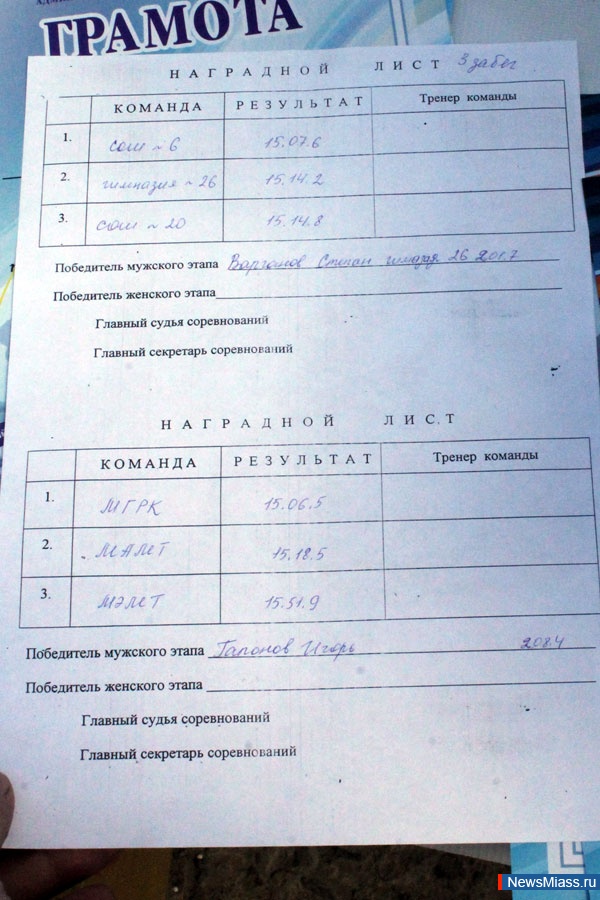 ГРАМОТА
НАГРАДНОЙ ЛИСТ 3 забег
КОМАНДА РЕЗУЛЬТАТ Тренер команды
1. сош ~ 6 15.07.6
2. гимназия ~ 26 15.14.2
3. сош ~ 20 15.14.8
Победитель мужского этапа Степан 26 201.7
Победитель женского этапа
Главный судья соревнований
Главный секретарь соревнований
НАГРАДНОЙ ЛИСТ
КОМАНДА РЕЗУЛЬТАТ Тренер команды
1. МГРК 15.06.5
2. 15.18.5
3. 15.51.9
Победитель мужского этапа Гапонов Игорь 208.4
Победитель женского этапа
Главный судья соревнований
Главный секретарь соревнований
NewsMiass.ru